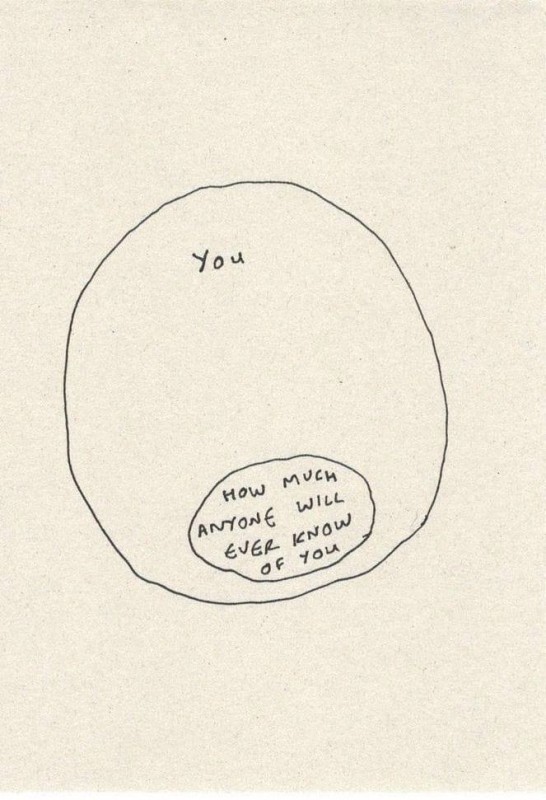 You
HOW MUCH
ANYONE WILL
EVER KNOW
OF YOU